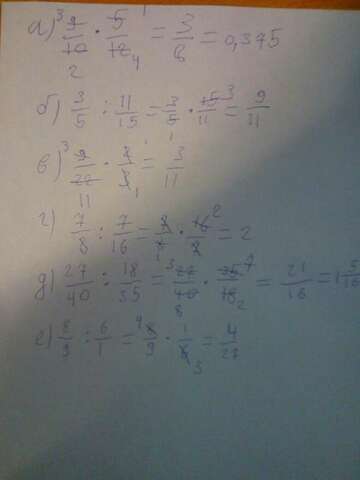 а) 9/10 · 5/12 = 3/8 = 0,375
б) 3/5 : 11/15 = 3/5 · 15/11 = 9/11
в) 9/22 · 2/3 = 3/11
г) 7/8 : 7/16 = 7/8 · 16/7 = 2
д) 27/40 : 18/35 = 27/40 · 35/18 = 21/16 = 1 5/16
е) 8/9 : 6/1 = 8/9 · 1/6 = 4/27